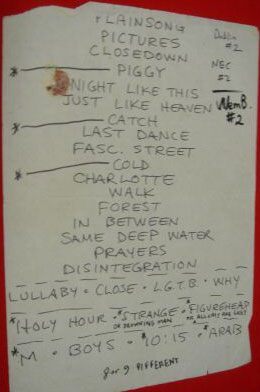 PLAINSONG
PICTURES
CLOSEDOWN
* PIGGY
NIGHT LIKE THIS
JUST LIKE HEAVEN
* CATCH
LAST DANCE
FASC. STREET
* COLD
CHARLOTTE
WALK
FOREST
IN BETWEEN
SAME DEEP WATER
PRAYERS
DISINTEGRATION
LULLABY • CLOSE • L.G.T.B. • WHY
*HOLY HOUR • *STRANGE • *FIGUREHEAD
OR DROWNING MAN OR ALL CATS ARE GREY
*M • BOYS • *10:15 • *ARAB
8 or 9 DIFFERENT
Dublin
#2
NEC
#2
WemB.
#2